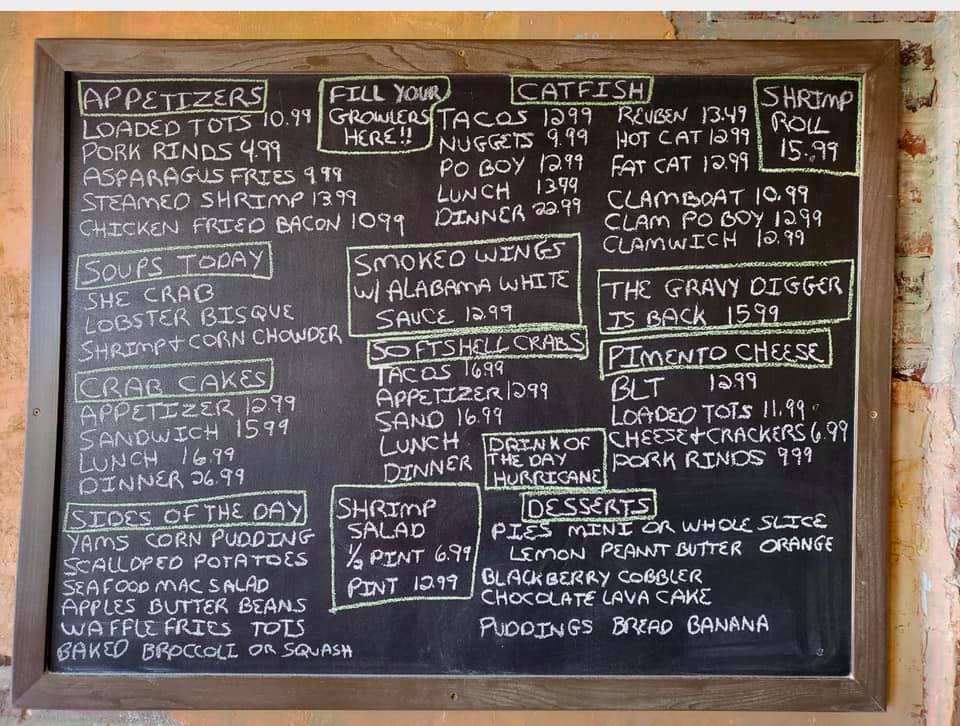 APPETIZERS
LOADED TOTS 10.99
PORK RINDS 4.99
ASPARAGUS FRIES 9.99
STEAMED SHRIMP 13.99
CHICKEN FRIED BACON 10.99
FILL YOUR
GROWLERS
HERE!!
CATFISH
TACOS 12.99
NUGGETS 9.99
PO BOY 12.99
LUNCH 13.99
DINNER 22.99
REUBEN 13.49
HOT CAT 12.99
FAT CAT 12.99
CLAMBOAT 10.99
CLAM PO BOY 12.99
CLAMWICH 12.99
SHRIMP
ROLL
15.99
SOUPS TODAY
SHE CRAB
LOBSTER BISQUE
SHRIMP + CORN CHOWDER
SMOKED WINGS
W/ ALABAMA WHITE
SAUCE 12.99
THE GRAVY DIGGER
IS BACK 15.99
CRAB CAKES
APPETIZER 12.99
SANDWICH 15.99
LUNCH 16.99
DINNER 26.99
SOFTSHELL CRABS
TACOS 16.99
APPETIZER 12.99
SAND 16.99
LUNCH
DINNER
DRINK OF
THE DAY
HURRICANE
PIMENTO CHEESE
BLT 12.99
LOADED TOTS 11.99
CHEESE + CRACKERS 6.99
PORK RINDS 9.99
SIDES OF THE DAY
YAMS CORN PUDDING
SCALLOPED POTATOES
SEAFOOD MAC SALAD
APPLES BUTTER BEANS
WAFFLE FRIES TOTS
BAKED BROCCOLI OR SQUASH
SHRIMP
SALAD
½ PINT 6.99
PINT 12.99
DESSERTS
PIES MINI OR WHOLE SLICE
LEMON PEANUT BUTTER ORANGE
BLACKBERRY COBBLER
CHOCOLATE LAVA CAKE
PUDDINGS BREAD BANANA